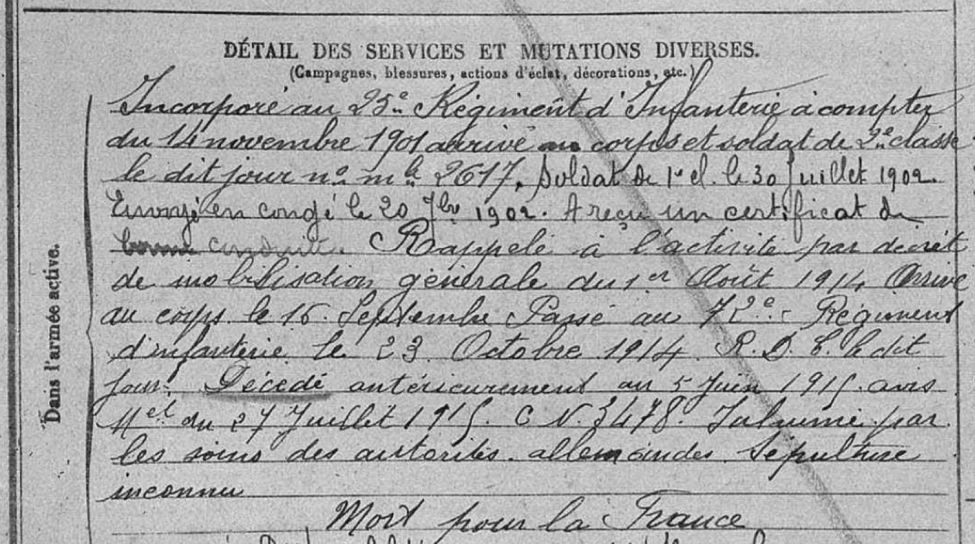 DÉTAIL DES SERVICES ET MUTATIONS DIVERSES.
(Campagnes, blessures, actions d'éclat, décorations, etc.)
Incorporé au 25e Régiment d'Infanterie à compter
du 14 novembre 1901 arrivé au corps et soldat de 2e classe
le dit jour no mle 2617. Soldat de 1e cl. le 30 Juillet 1902.
Envoyé en congé le 20 7bre 1902. A reçu un certificat de
bonne conduite. Rappelé à l'activité par décret
de mobilisation générale du 1er Août 1914 Arrivé
au corps le 16 Septembre Passé au 72e Régiment
d'infanterie le 23 Octobre 1914 R. D. C. le dit
jour. Décédé antérieurement au 5 Juin 1915 avis
Mel du 27 Juillet 1915. C N. 3478. Inhumé par
les soins des autorités allemandes Sépulture
inconnu
Mort pour la France
Dans l'armée active.